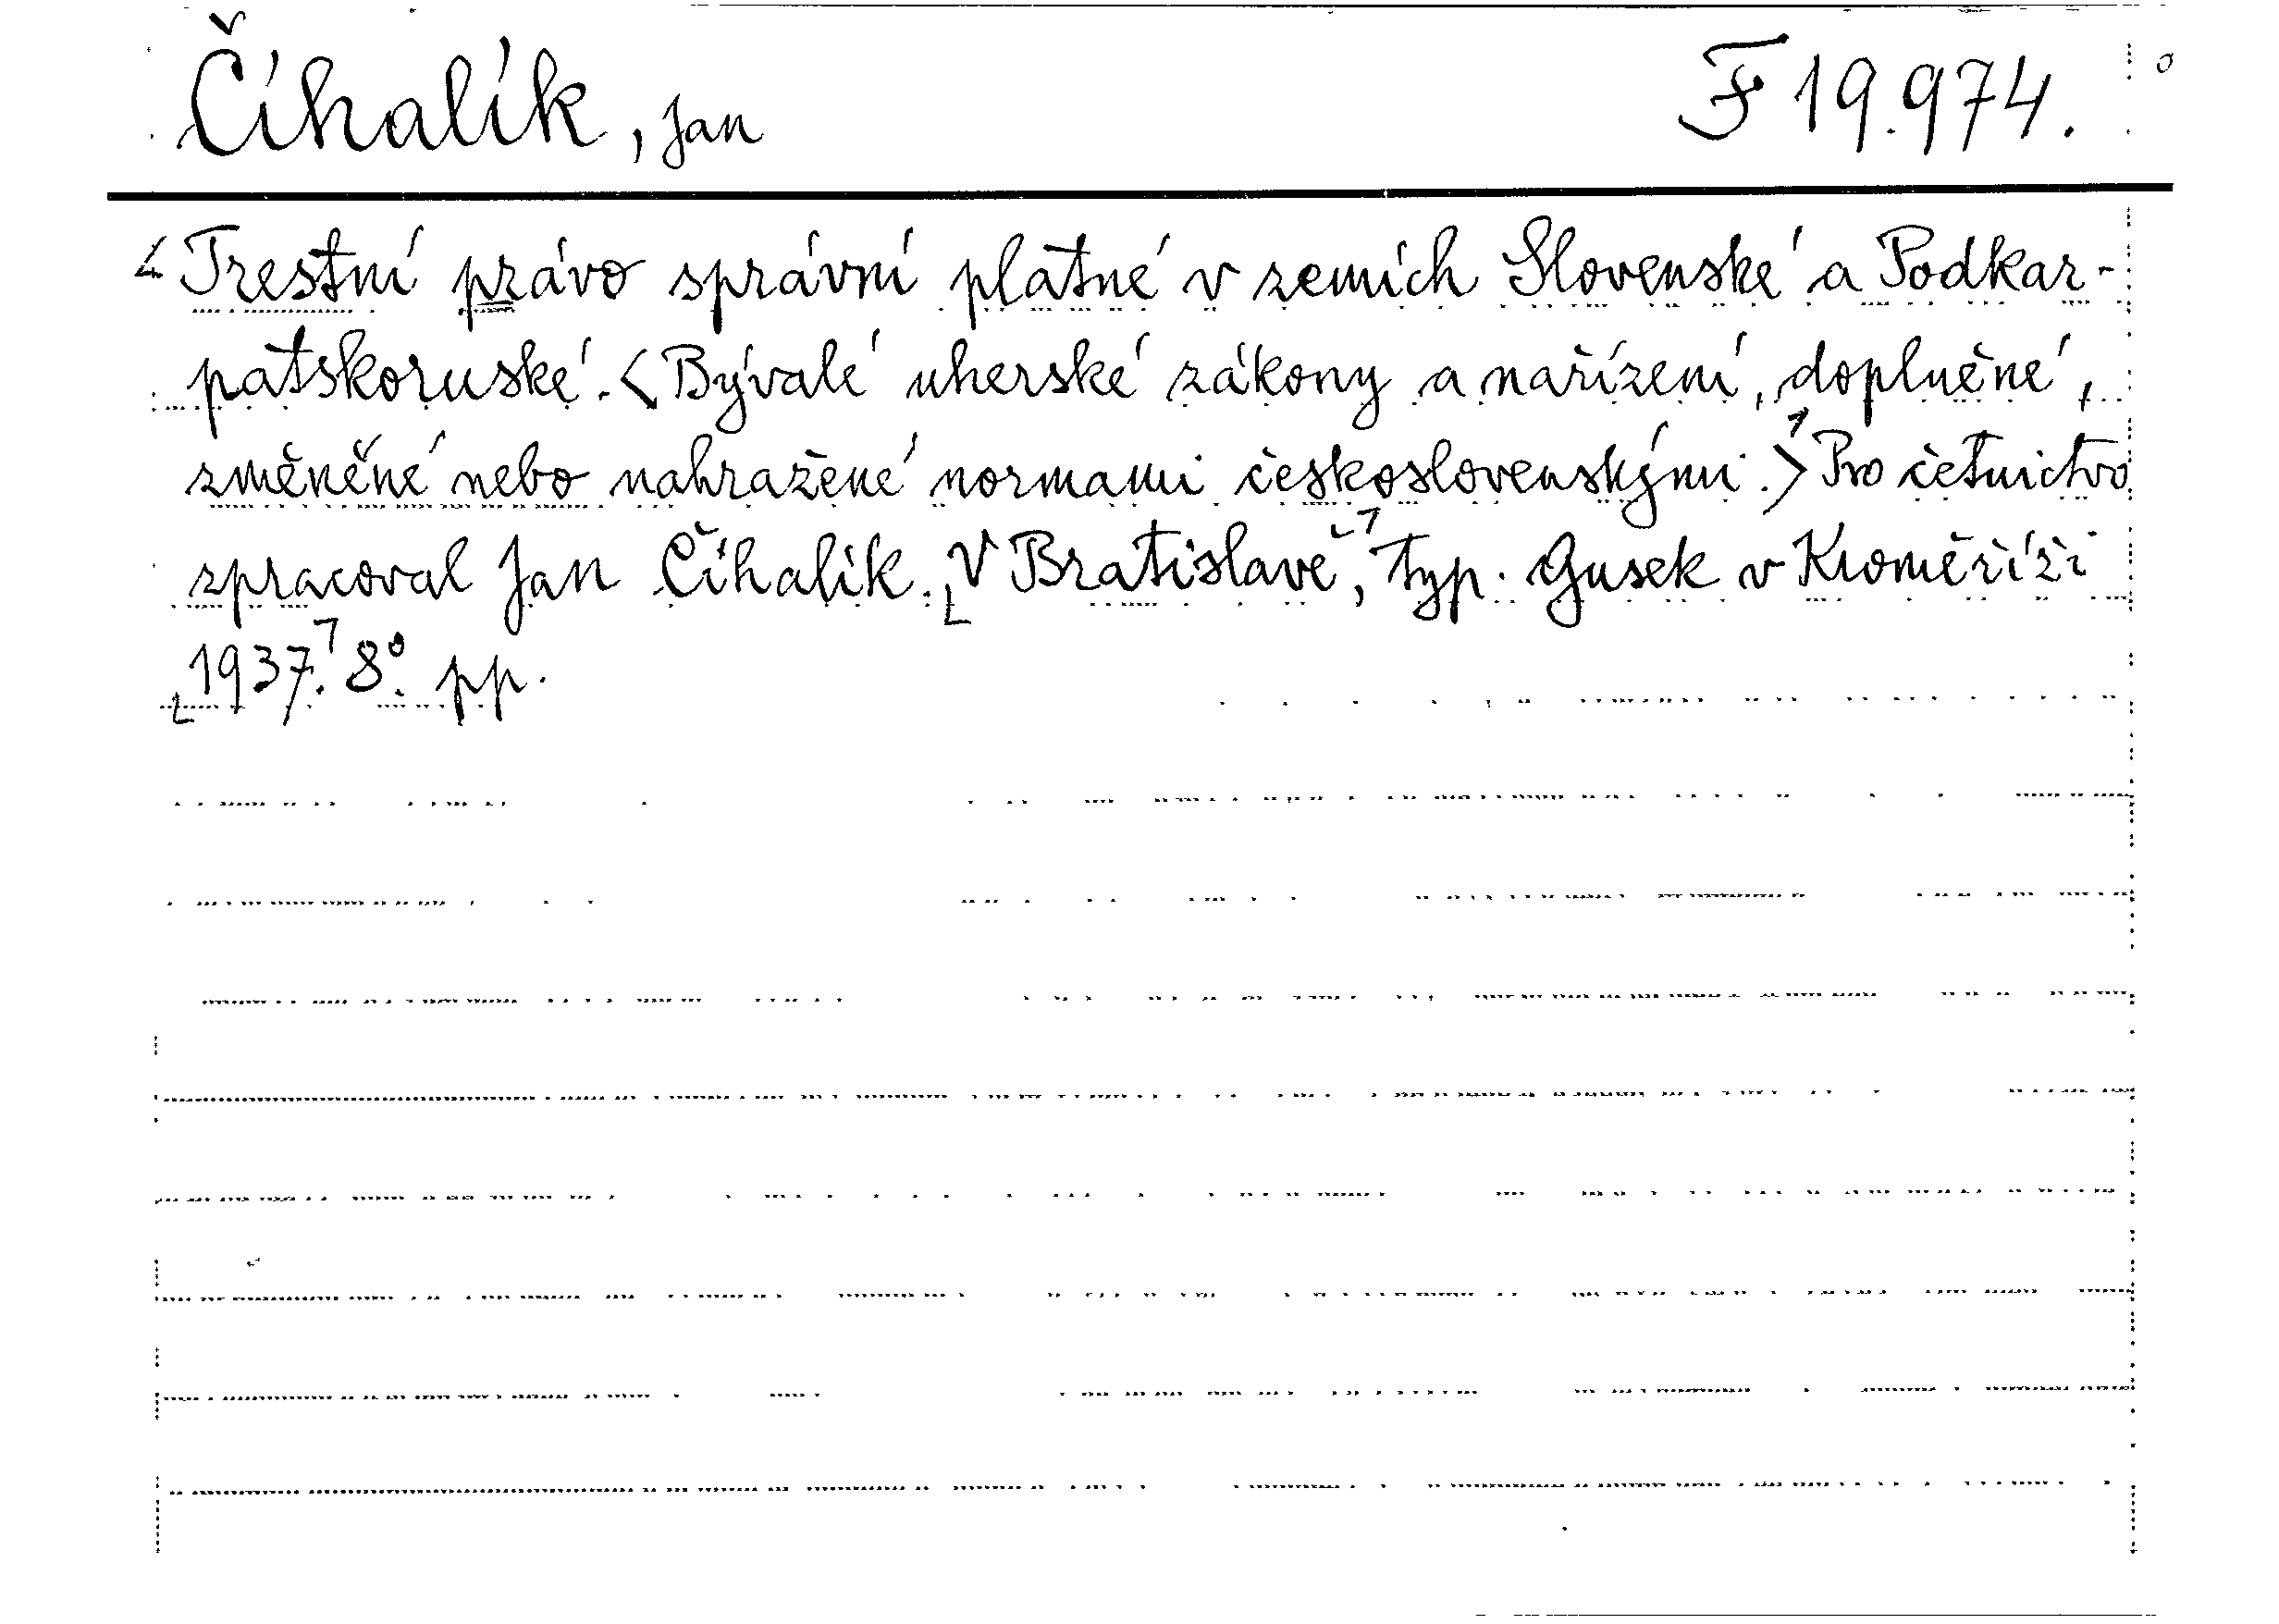 Číhalík, Jan F 19.974.
Trestní právo správní platné v zemích Slovenské a Podkar-
patskoruské. <Bývalé uherské zákony a nařízení, doplněné,
změněné nebo nahražené normami československými.> Pro četnictvo
zpracoval Jan Číhalík. [V Bratislavě], typ. Gusek v Kroměříži
[1937]. 8°. pp.